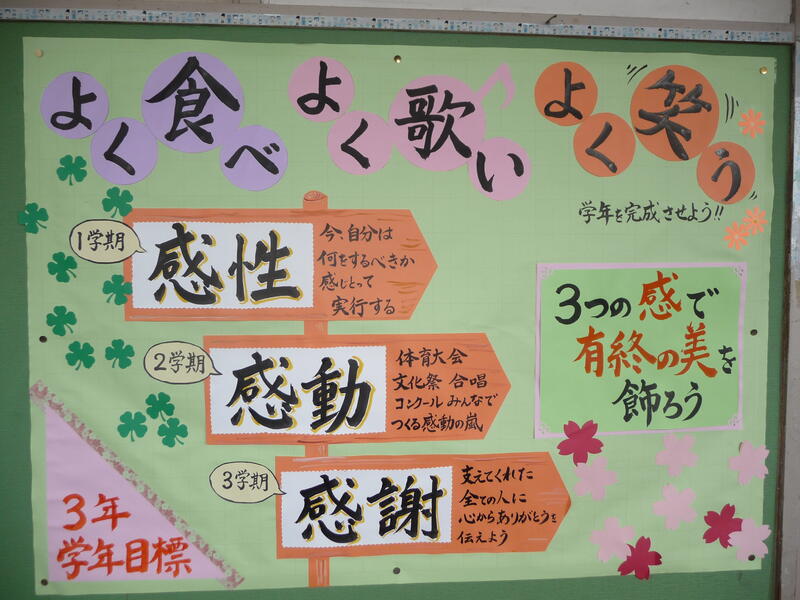 よく食べ よく歌い よく笑う
学年を完成させよう!!
1学期
感性
今、自分は
何をするべきか
感じとって
実行する
2学期
感動
体育大会
文化祭 合唱
コンクール みんなで
つくる感動の嵐
3学期
感謝
支えてくれた
全ての人に
心からありがとうを
伝えよう
3つの感で
有終の美を
飾ろう
3年
学年目標